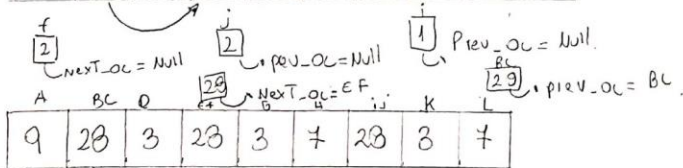 f j i
2 2 1
Next_Oc = Null .pev_Oc = Null Prev_Oc = Null.
BC
28 .Next_Oc = EF 29 .prev_Oc = BC
A BC D EF G H ij K L
9 28 3 23 3 7 23 3 7